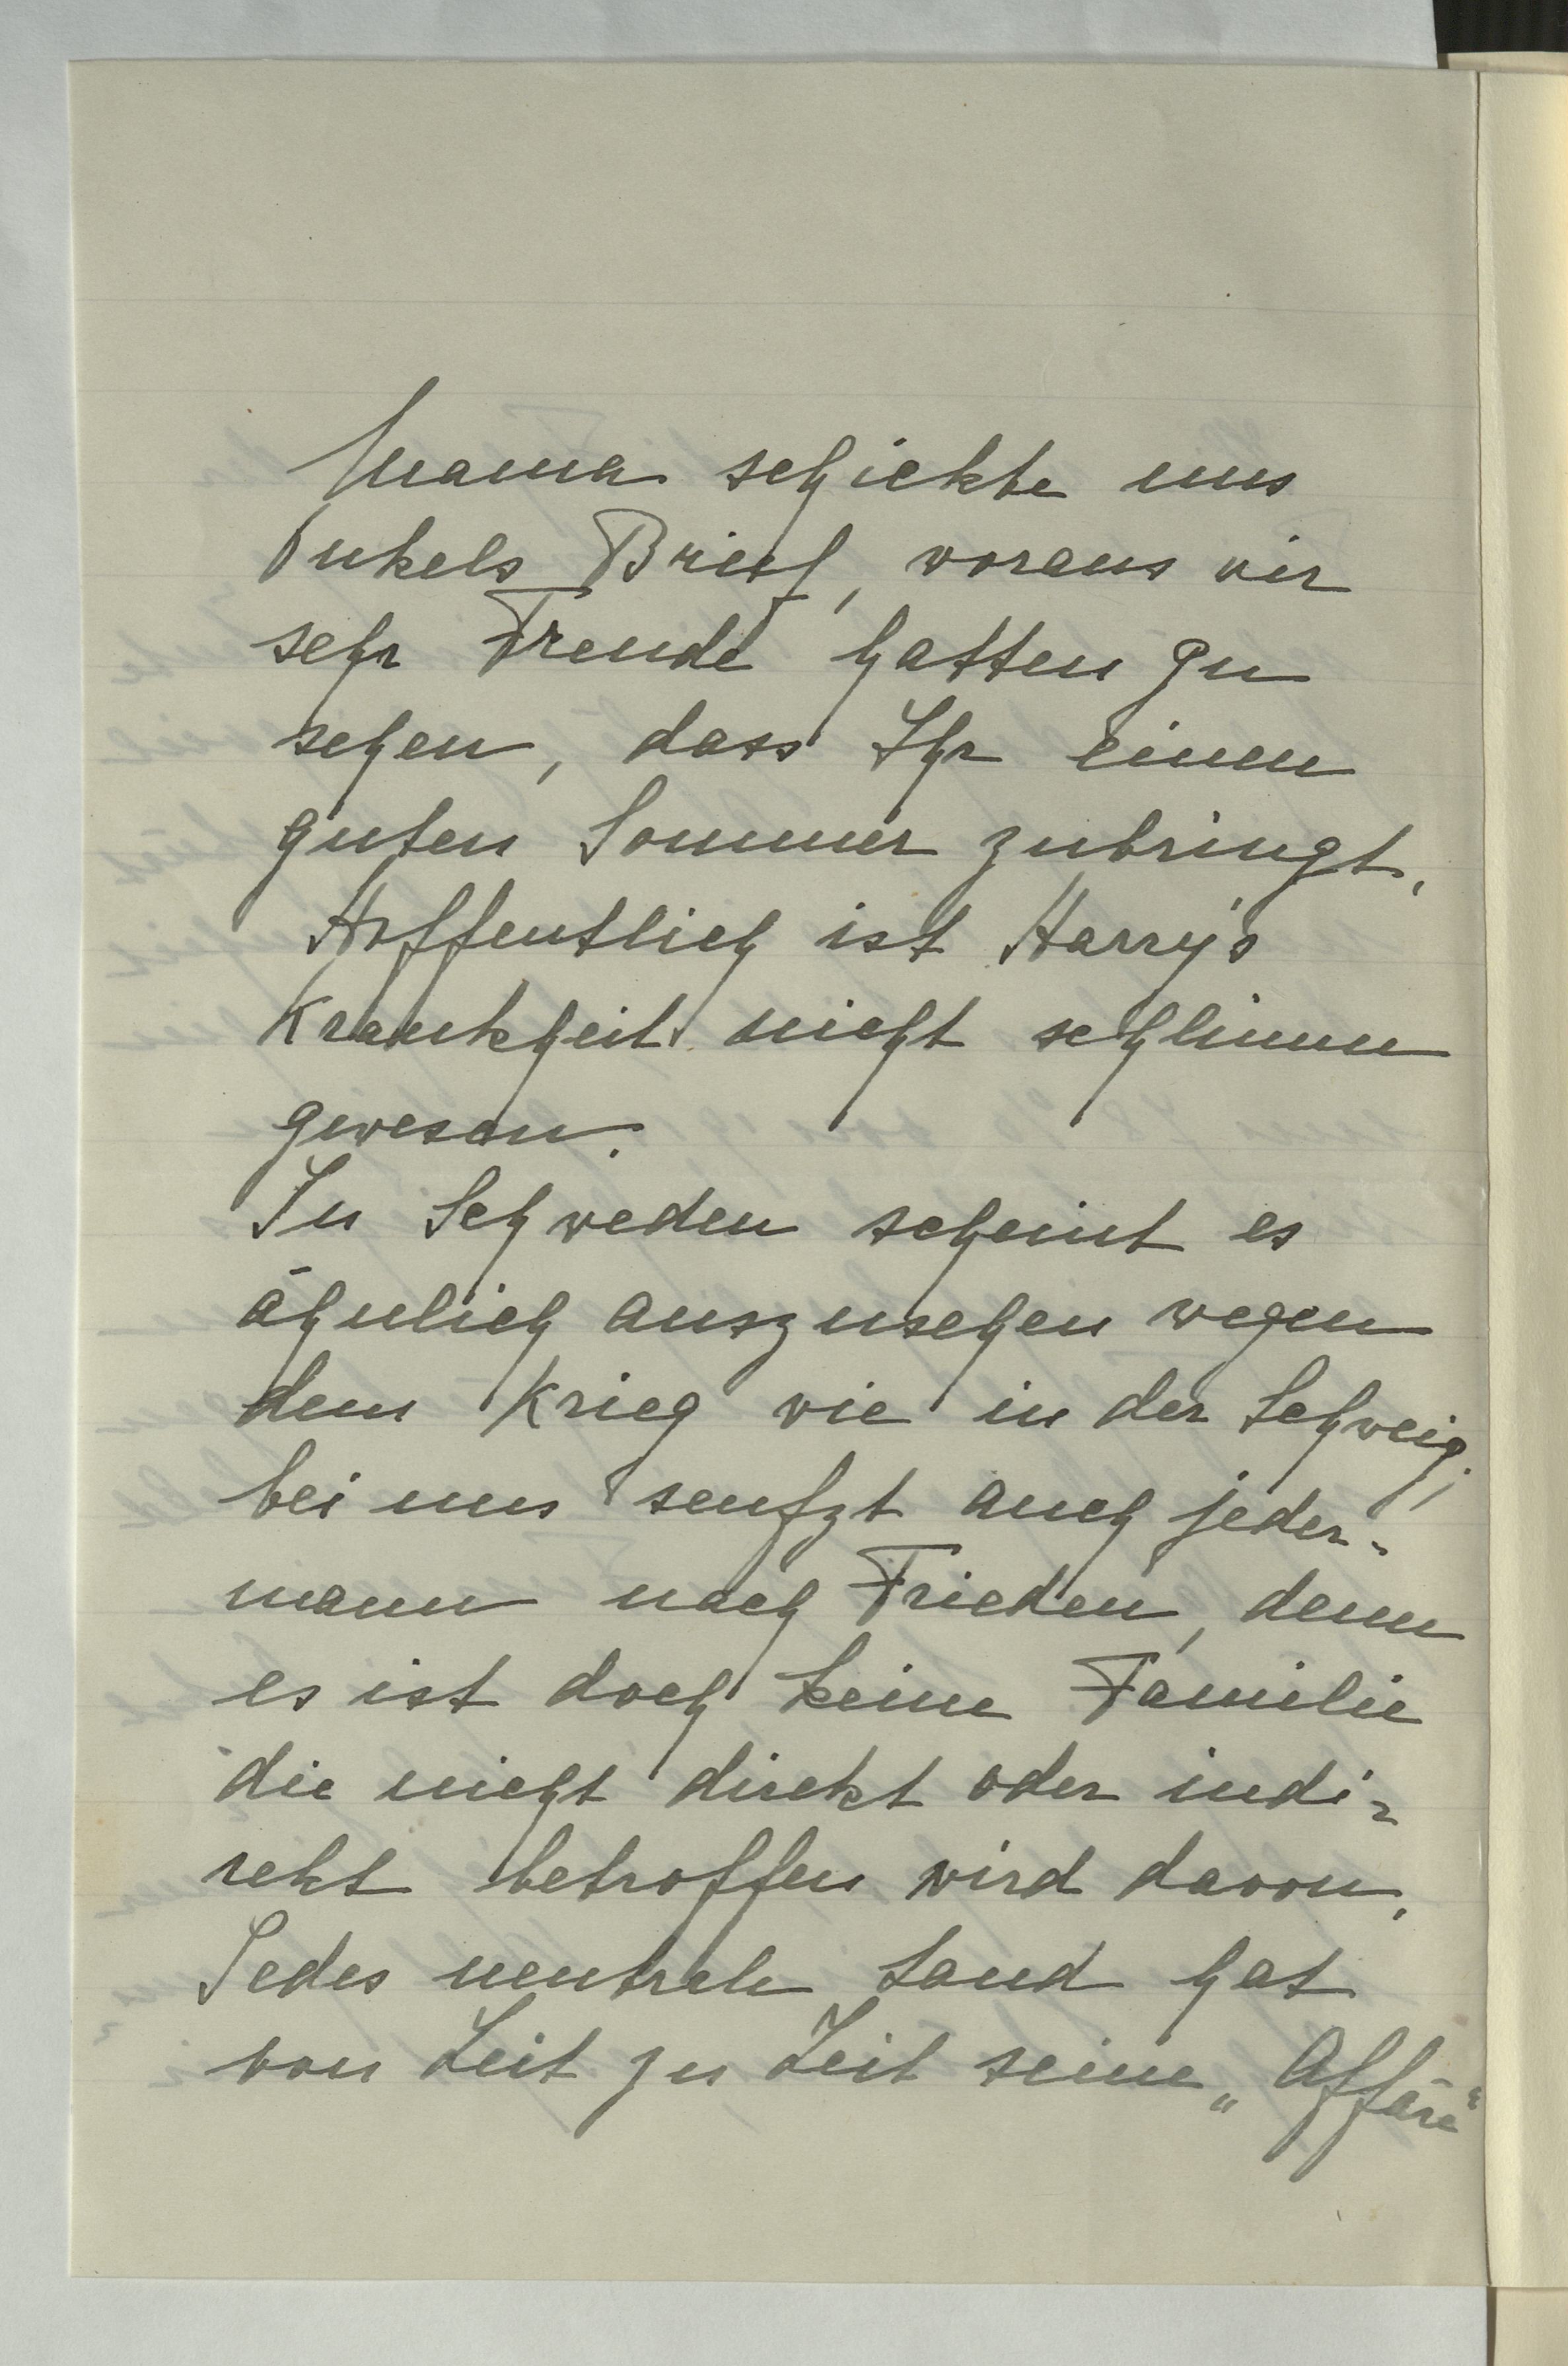 Mama schickte uns
Onkels Brief, woraus wir
sehr Freude hatten zu
sehen, dass Ihr einen
guten Sommer zubringt.
Hoffentlich ist Harry's
Krankheit nicht schlimm
gewesen.
In Schweden scheint es
ähnlich auszusehen wegen
dem Krieg wie in der Schweiz;
bei uns seufzt auch jeder-
mann nach Frieden, denn
es ist doch keine Familie
die nicht direkt oder indi-
rekt betroffen wird davon.
Jedes neutrale Land hat
von Zeit zu Zeit seine „Affäre“